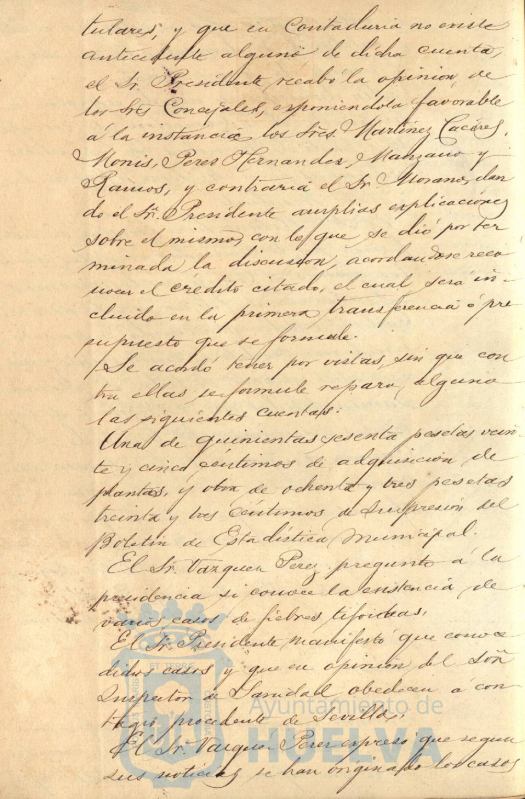 tulares, y que en Contaduria no existe
antecedente alguno de dicha cuenta,
el Sr. Presidente, recabó la opinion, de
los Sres Concejales, exponiendola favorable
á la instancia los Sres. Martinez Cacéres,
Monis, Perez Hernandez, Manzano y
Ramos, y contraria el Sr Morano, dan
do el Sr. Presidente amplias explicaciones
sobre el mismo con lo que se dió por ter
minada la discusion, acordandose reco
nocer el credito citado, el cual será in-
cluido en la primera transferencia ó pre
supuesto que se formule.
Se acordó tener por vistas, sin que con
tra ellas se formule reparo, alguno
las siguientes cuentas:
Una de quinientas sesenta pesetas vein
te y cinco céntimos de adquisicion de
plantas, y otra de ochenta y tres pesetas
treinta y tres centimos de Impresión del
Boletín de Estadistica Municipal.
El Sr. Vazquez Perez preguntó á la
presidencia si conoce la existencia de
varios casos de fiebres tifoideas,
El Sr. Presidente manifestó que conoce
dichos casos y que en opinion del Señ
Inspector de Sanidad obedecen á con
tagio procedente de Sevilla,
El Sr. Vazquez Perez expresó que segun
sus noticias se han originado los casos
Ayuntamiento de
HUELVA